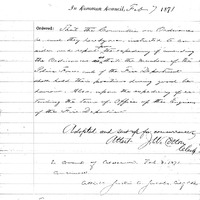 In Common Council, Feb 7 1871
Ordered: That the Committee on Ordinances
be and they hereby are instructed to consider
and report the expediency of amending
the Ordinances so that the members of the
Police Force and of the Fire Department
shall hold their positions during good be-
havior. Also, upon the expediency of ex-
tending the Term of Office of the Engineers
of the Fire Department
Adopted and sent up for concurrence
Attest
Clerk
In Board of Feb 8. 1871
Concurred
Attest